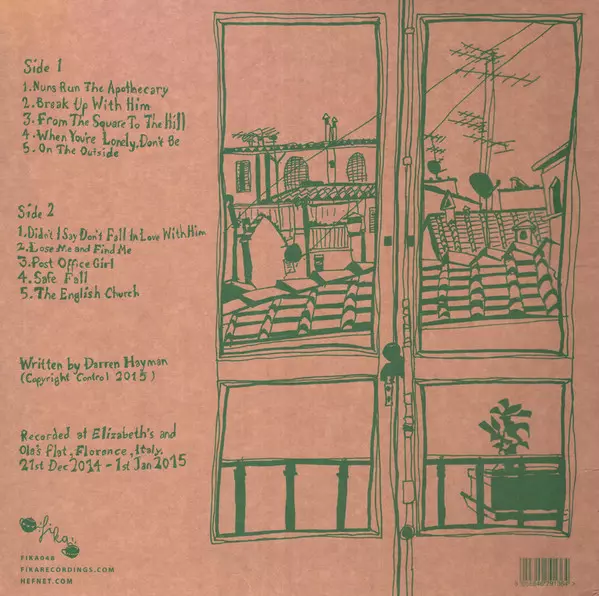 Side 1
1. Nuns Run The Apothecary
2. Break Up With Him
3. From The Square To The Hill
4. When You're Lonely, Don't Be
5. On The Outside
Side 2
1. Didn't I Say Don't Fall In Love With Him
2. Lose Me and Find Me
3. Post Office Girl
4. Safe Fall
5. The English Church
Written by Darren Hayman
(Copyright Control 2015)
Recorded at Elizabeth's and
Ola's Flat, Florence, Italy.
21st Dec 2014 - 1st Jan 2015
fika
FIKA048
FIKARECORDINGS.COM
HEFNET.COM